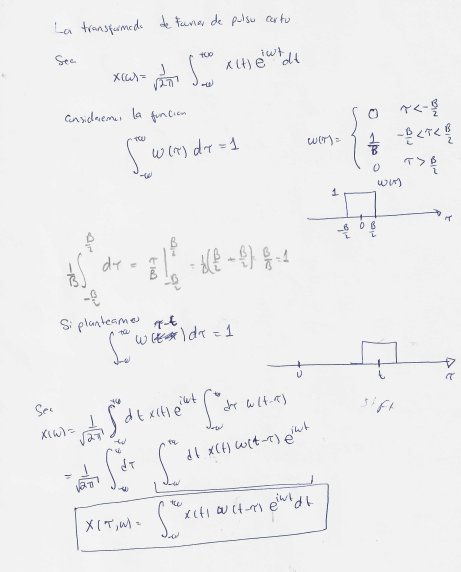 La transformada de Fourier de pulso corto
Sea
X(ω) = 1/√2π ∫_{-∞}^{+∞} x(t) e^{iωt} dt
Consideremos la funcion
∫_{-∞}^{+∞} w(τ) dτ = 1
w(τ) = { 0 τ < -B/2
1/B -B/2 < τ < B/2
0 τ > B/2
w(τ)
1
-B/2 0 B/2 τ
1/B ∫_{-B/2}^{B/2} dτ = τ/B |_{-B/2}^{B/2} = 1/B (B/2 + B/2) = B/B = 1
Si planteamos
∫_{-∞}^{+∞} w(τ-t) dτ = 1
0 t τ
Sea
X(ω) = 1/√2π ∫_{-∞}^{+∞} dt x(t) e^{iωt} ∫_{-∞}^{∞} dτ w(t-τ)
= 1/√2π ∫_{-∞}^{∞} dτ ∫_{-∞}^{+∞} dt x(t) w(t-τ) e^{iωt}
X(τ,ω) = ∫_{-∞}^{+∞} x(t) w(t-τ) e^{iωt} dt